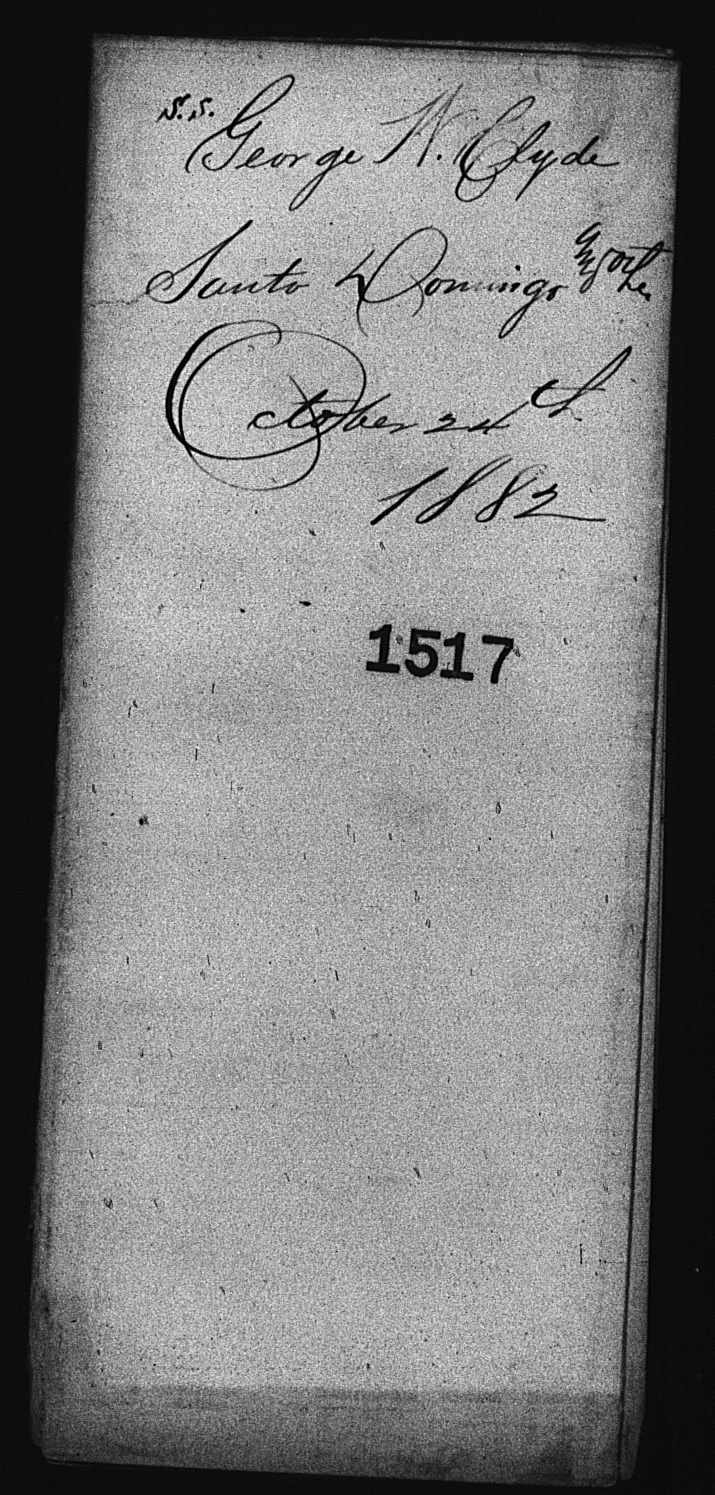 S.S.
George W. Clyde
Santo Domingo
October 24th
1882
1517